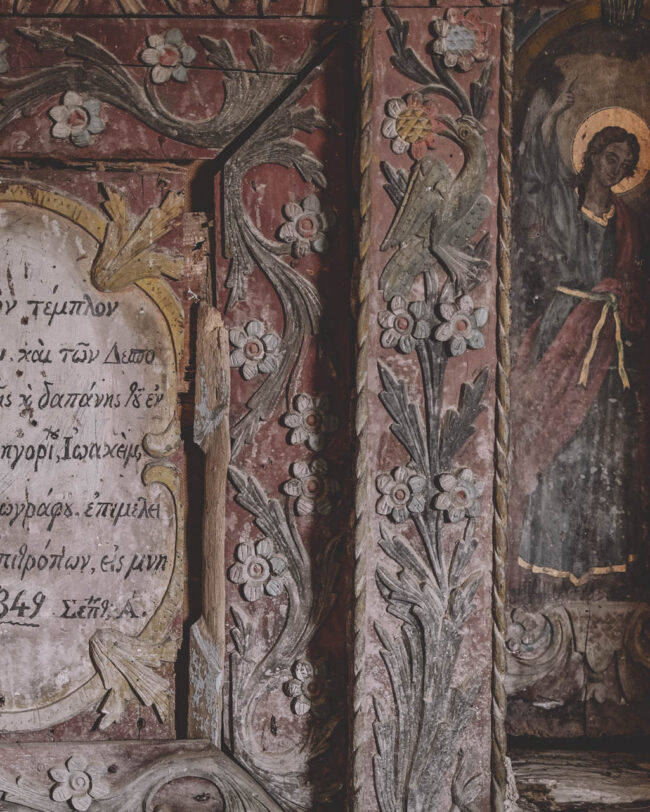 ον τέμπλον
ν. καὶ τῶν Δεσπο
ῆς κ δαπάνης
ηγορί, Ἰωακὲμ,
ωγράφου. ἐπιμελεί
πιτρόπων, εἰς μνη
349 Σεπτ: Α.